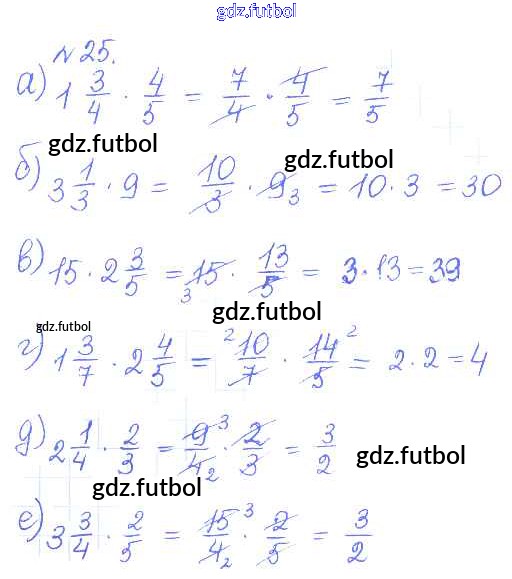 gdz.futbol
№25.
а) 1 3/4 · 4/5 = 7/4 · 4/5 = 7/5
gdz.futbol gdz.futbol
б) 3 1/3 · 9 = 10/3 · 9 3 = 10 · 3 = 30
в) 15 · 2 3/5 = 3 15 · 13/5 = 3 · 13 = 39
gdz.futbol
gdz.futbol
г) 1 3/7 · 2 4/5 = 2 10/7 · 14/5 2 = 2 · 2 = 4
д) 2 1/4 · 2/3 = 9 3/4 2 · 2/3 = 3/2
gdz.futbol
gdz.futbol
е) 3 3/4 · 2/5 = 15 3/4 2 · 2/5 = 3/2